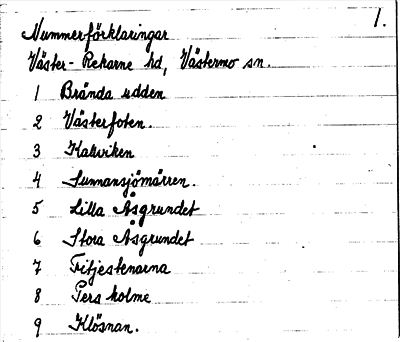 1.
Nummerförklaringar
Väster-Rekarne hd, Västermo sn.
1 Brända udden
2 Västerfoten.
3 Kalvviken
4 Sunnansjömärren.
5 Lilla Åsgrundet
6 Stora Åsgrundet
7 Fitjestenarna
8 Pers holme
9 Klösnan.